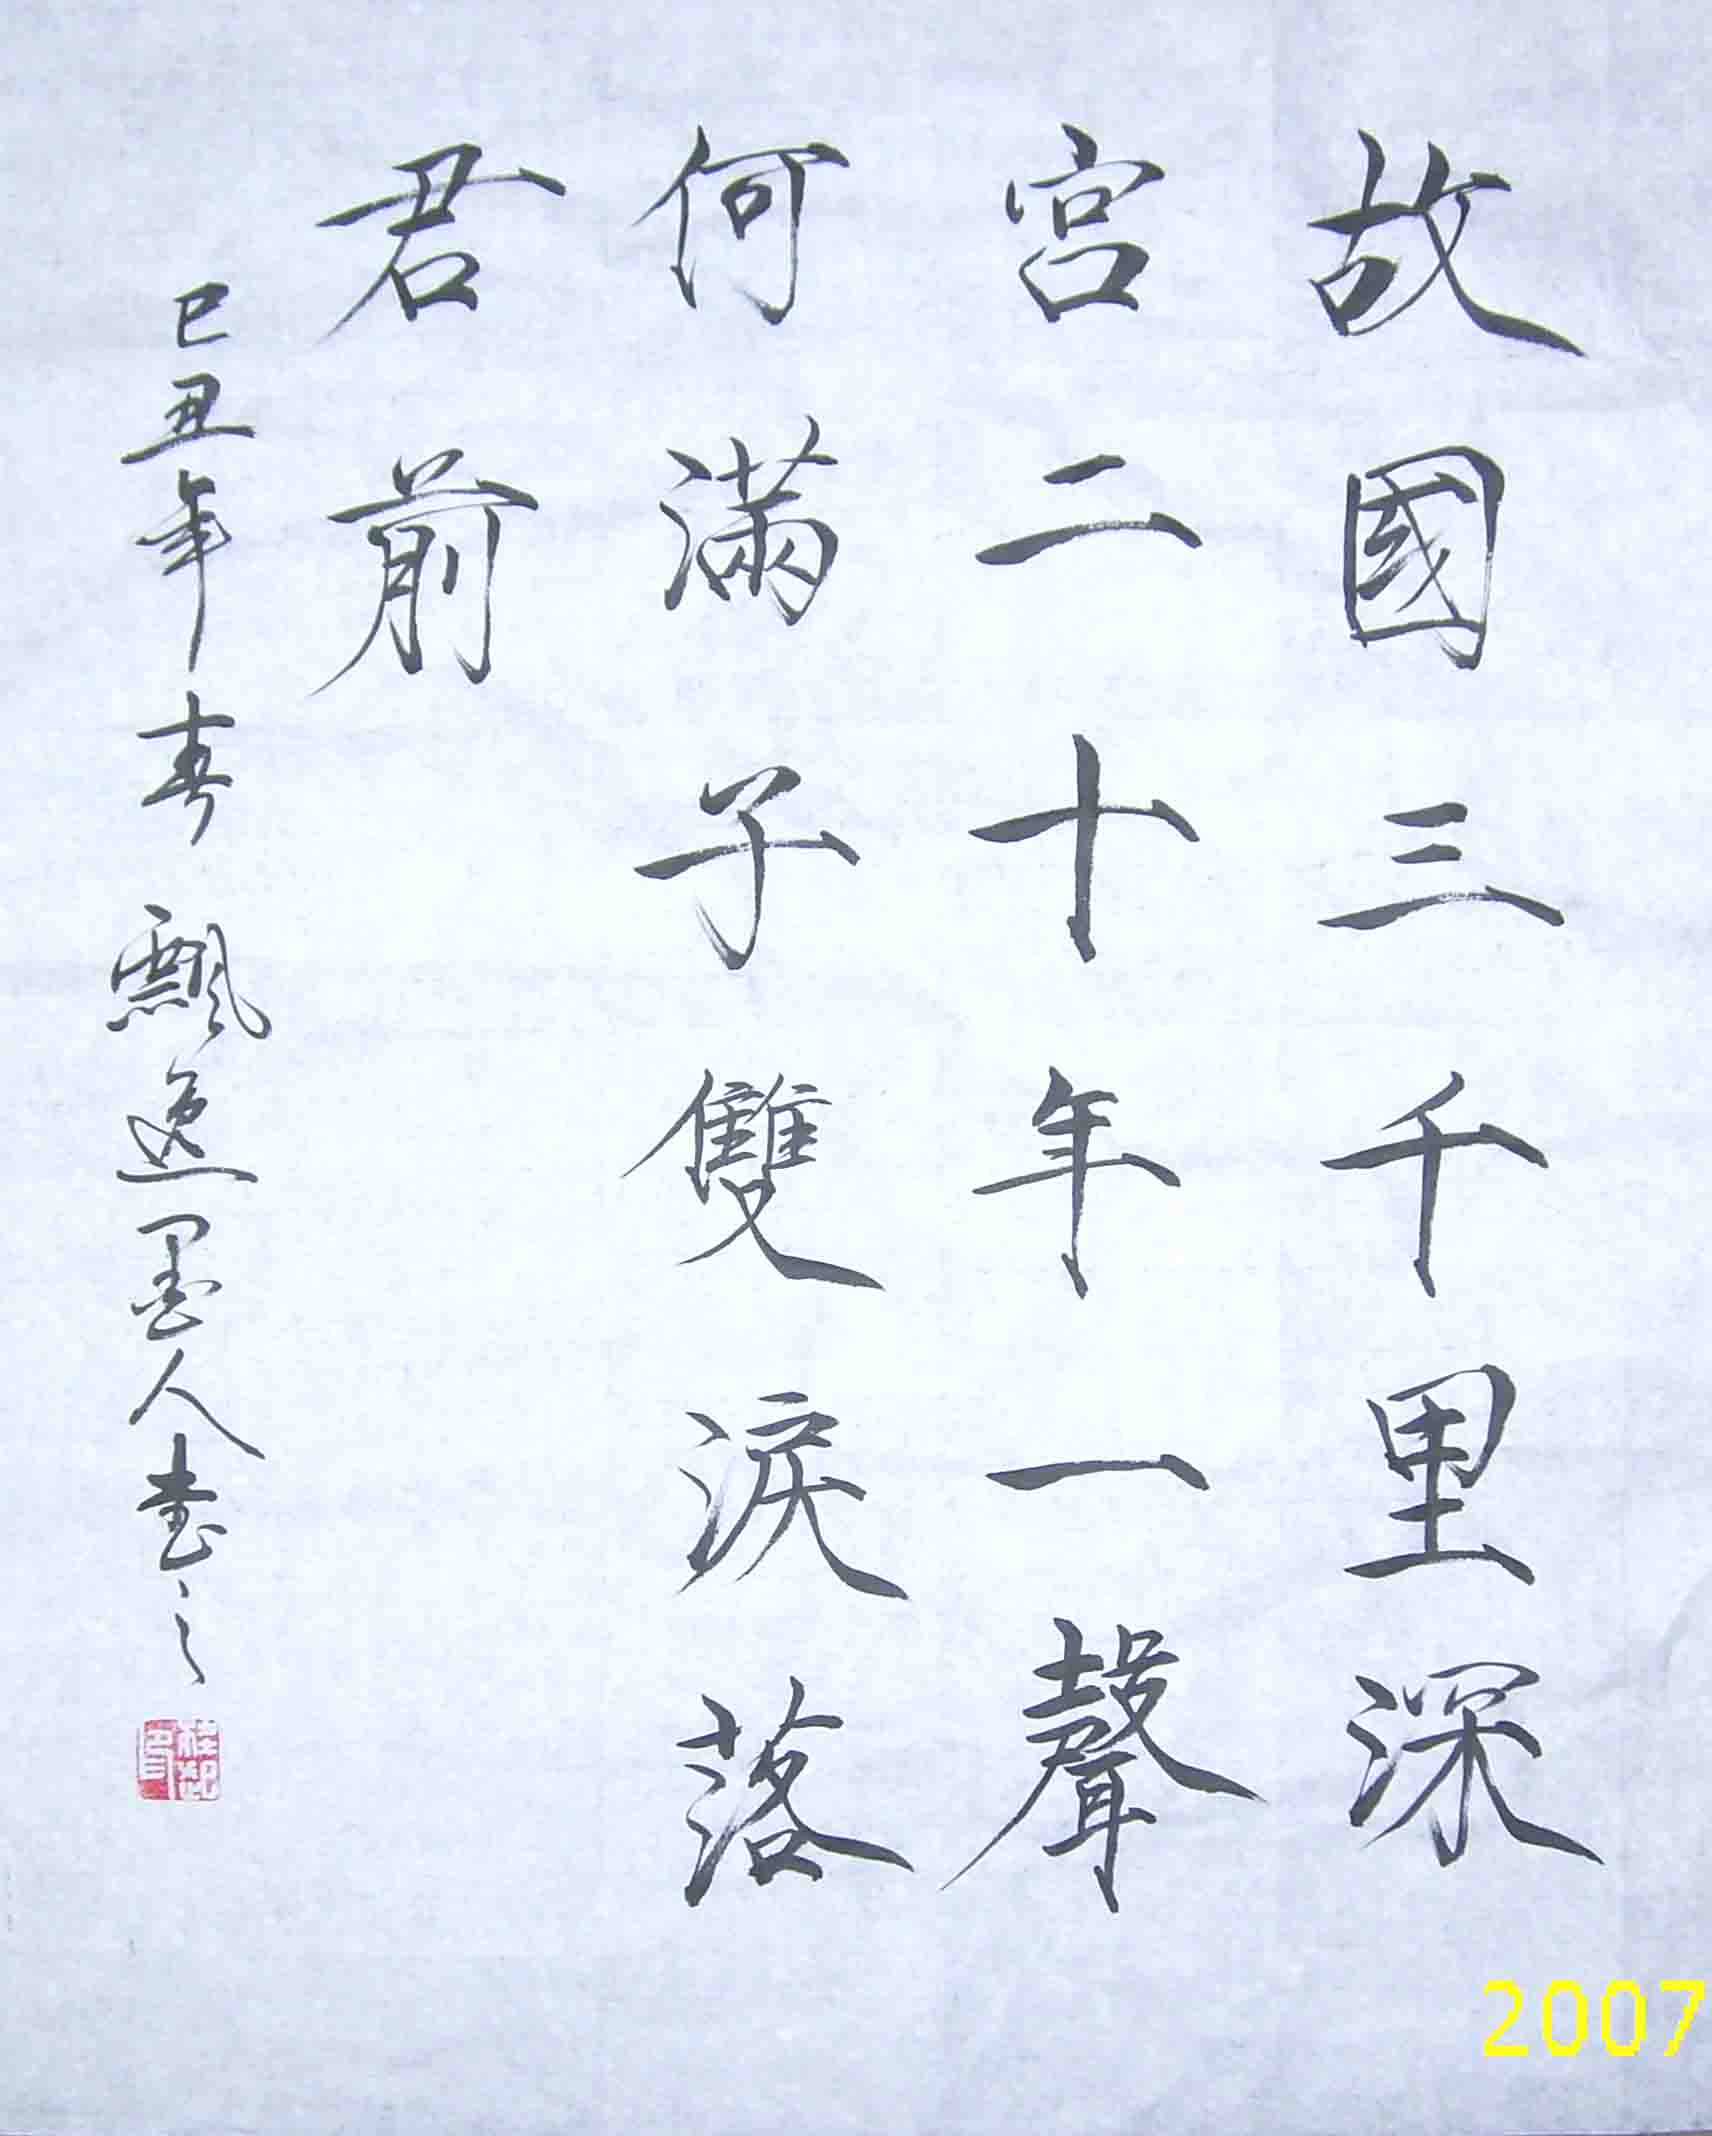 故國三千里深
宮二十年一聲
何滿子雙淚落
君前
己丑年春 飄逸墨人書之
2007